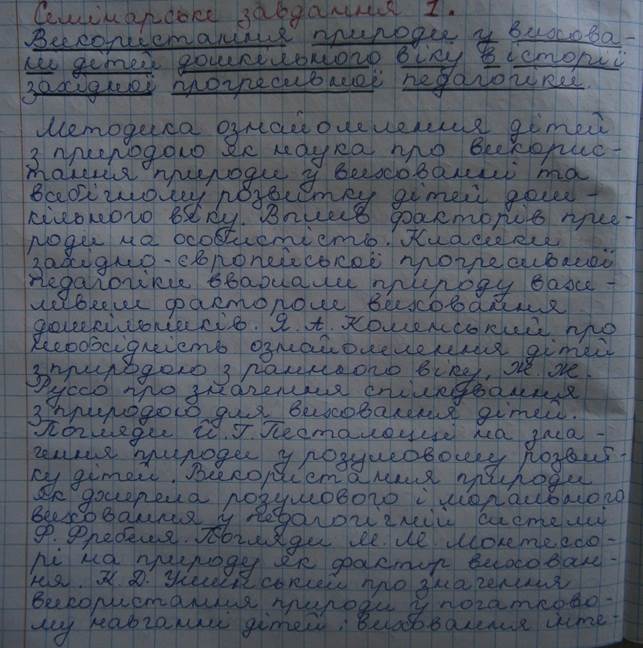 Семінарське завдання 1.
Використання природи у вихова-
ні дітей дошкільного віку в історії
західної прогресивної педагогіки.
Методика ознайомлення дітей
з природою як наука про викорис-
тання природи у вихованні та
всебічному розвитку дітей дош-
кільного віку. Вплив факторів при-
роди на особистість. Класики
західно-європейської прогресивної
педагогіки вважали природу важ-
ливим фактором виховання
дошкільників. Я. А. Коменський про
необхідність ознайомлення дітей
з природою з раннього віку, Ж. Ж.
Руссо про значення спілкування
з природою для виховання дітей.
Погляди Й. Г. Песталоцці на зна-
чення природи у розумовому розвит-
ку дітей. Використання природи
як джерела розумового і морального
виховання у педагогічній системі
Ф. Фребеля. Погляди М. М. Монтессо-
рі на природу як фактор вихован-
ня. К. Д. Ушинський про значення
використання природи у початково-
му навчанні дітей і виховання інте-